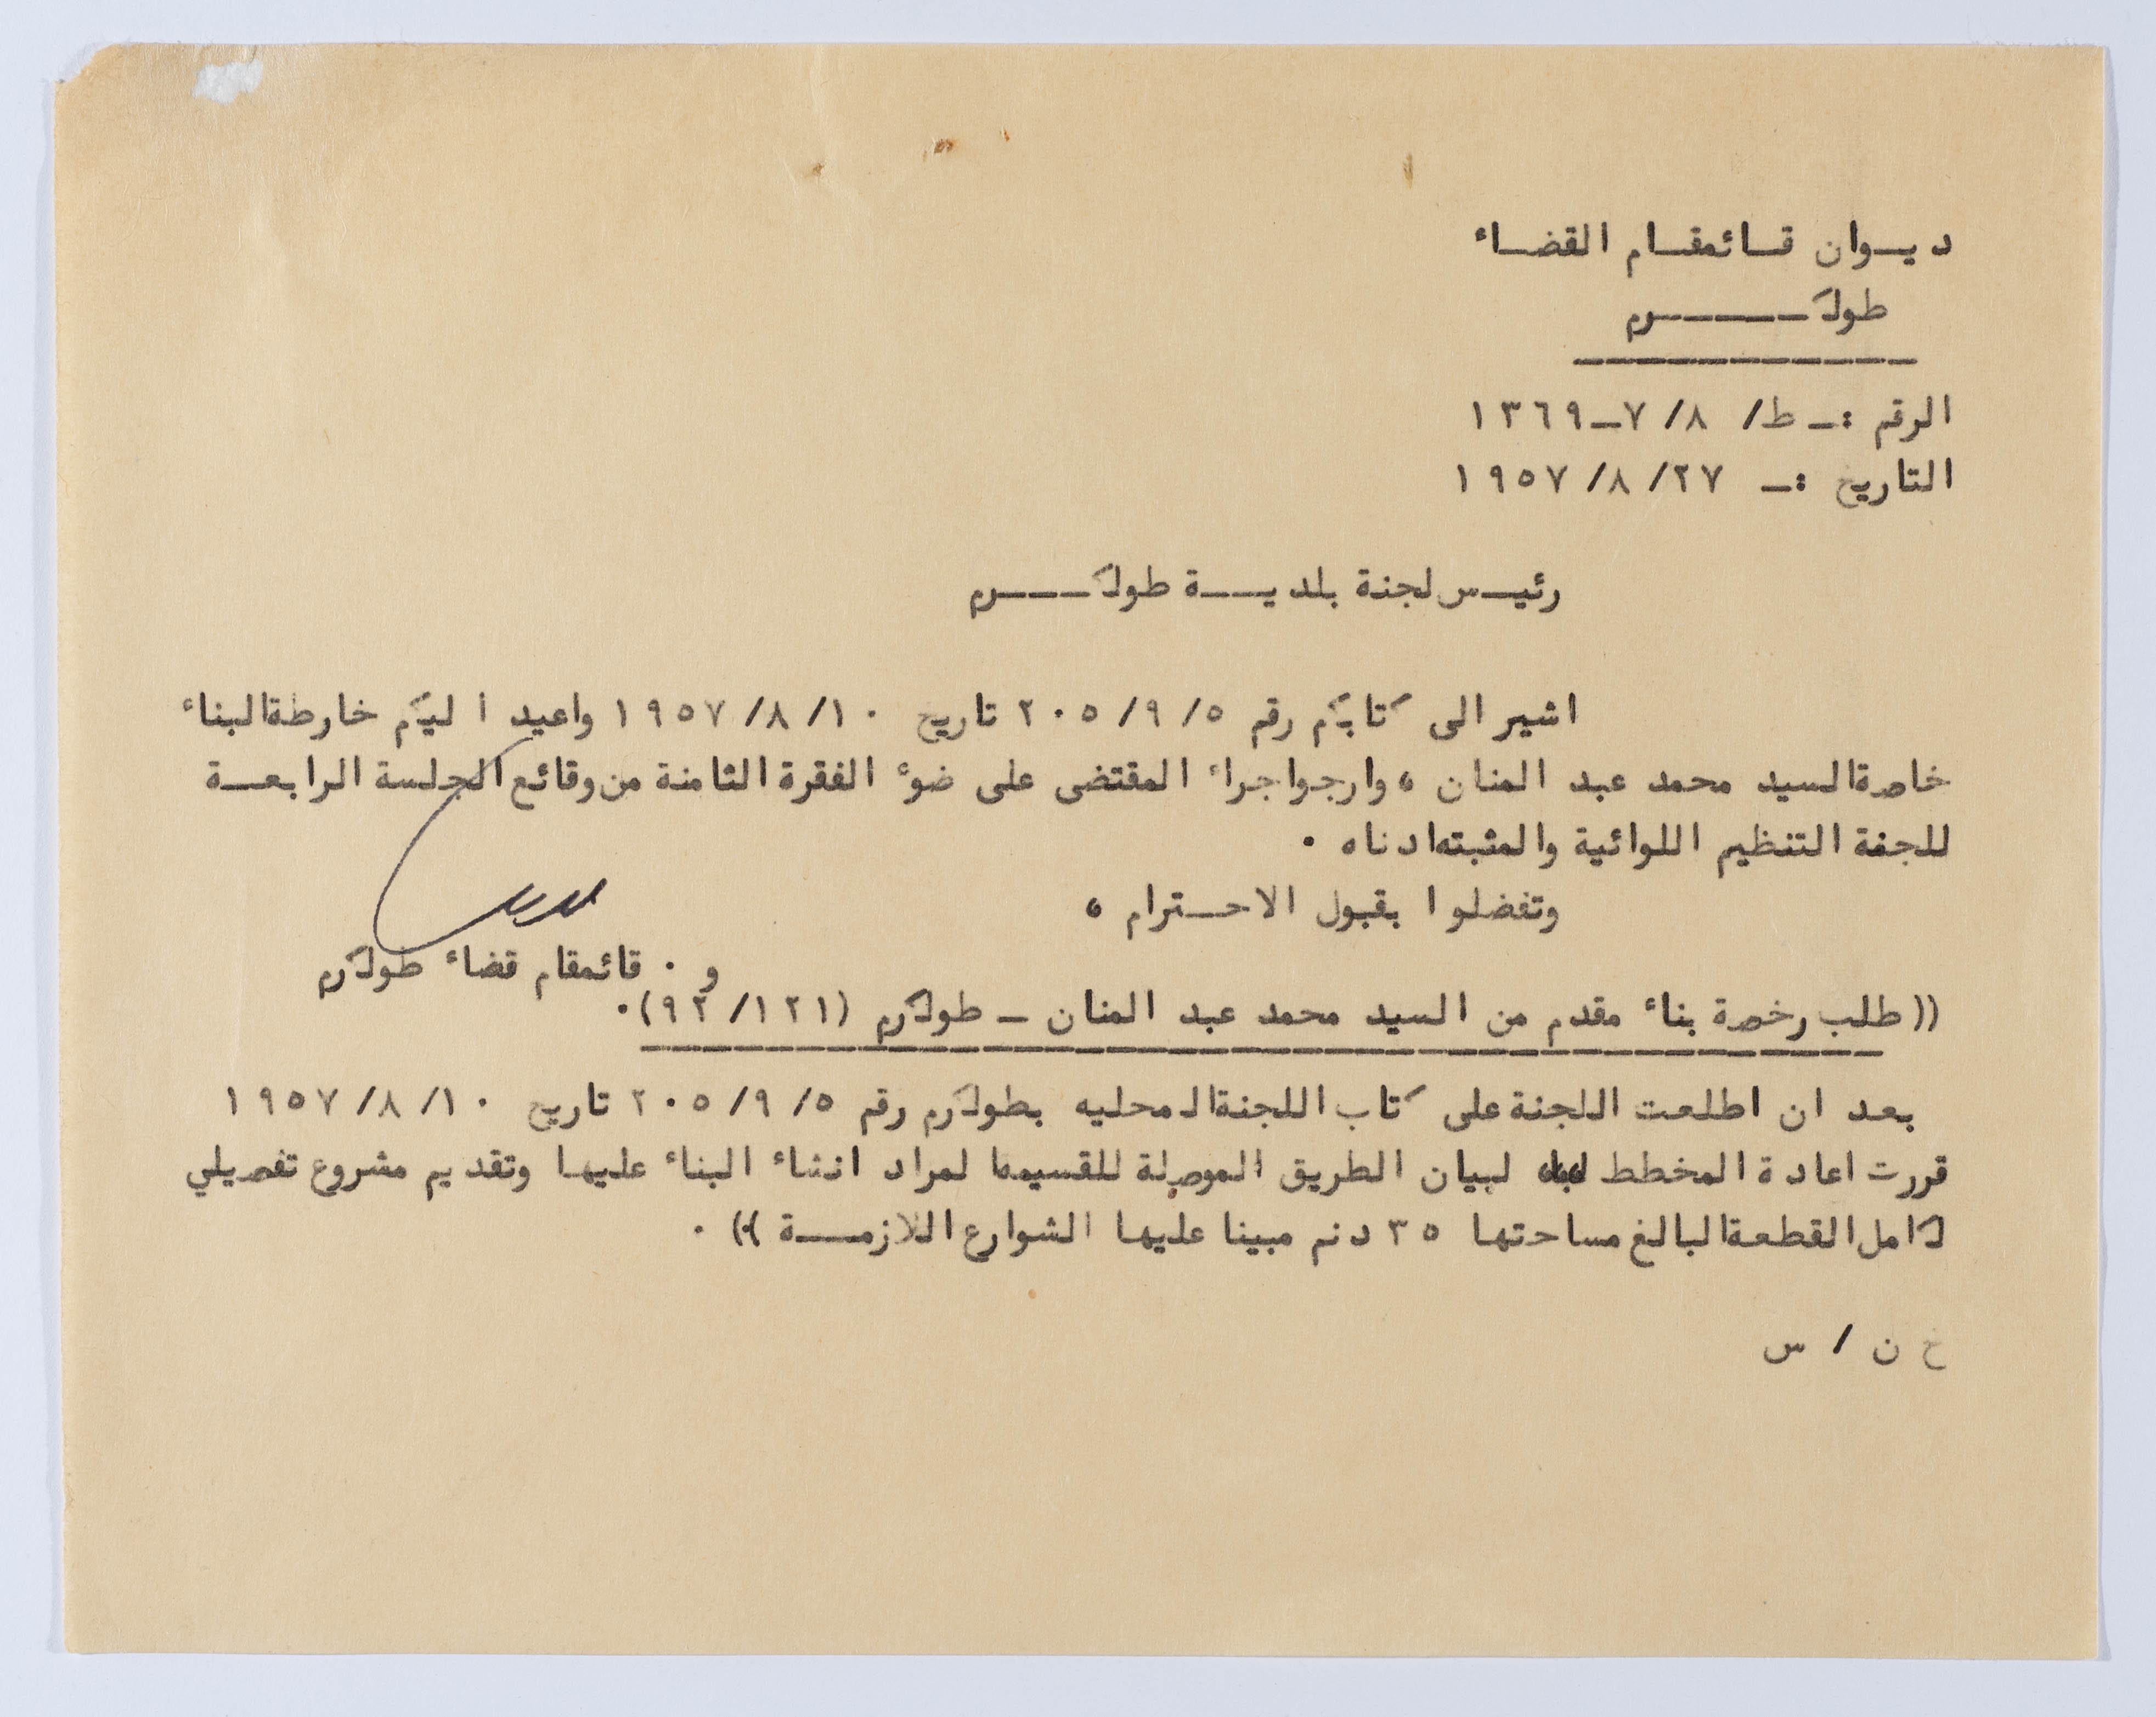 ديوان قائمقام القضاء
طولكرم
الرقم :ـ ط/ ٧/٨ـ١٣٦٩
التاريخ :ـ ٢٧/ ٨/ ١٩٥٧
رئيس لجنة بلدية طولكرم
اشير الى كتابكم رقم ٢٠٥/٩/٥ تاريخ ١٠/ ٨/ ١٩٥٧ واعيد اليكم خارطةالبناء
خاصةالسيد محمد عبد المنان ، وارجواجراء المقتضى على ضوء الفقرة الثامنة من وقائع الجلسة الرابعة
للجنة التنظيم اللوائية والمثبتهادناه .
وتفضلوا بقبول الاحترام ،
و . قائمقام قضاء طولكرم
(( طلب رخصة بناء مقدم من السيد محمد عبد المنان ـ طولكرم (٩٢/١٢١).
بعد ان اطلعت اللجنة على كتاب اللجنةالمحليه بطولكرم رقم ٢٠٥/٩/٥ تاريخ ١٠/ ٨/ ١٩٥٧
قررت اعادة المخطط لبيان الطريق الموصلة للقسيمة المراد انشاء البناء عليها وتقديم مشروع تفصيلي
لكامل القطعةالبالغ مساحتها ٣٥ دنم مبينا عليها الشوارع اللازمة )) .
خ ن / س